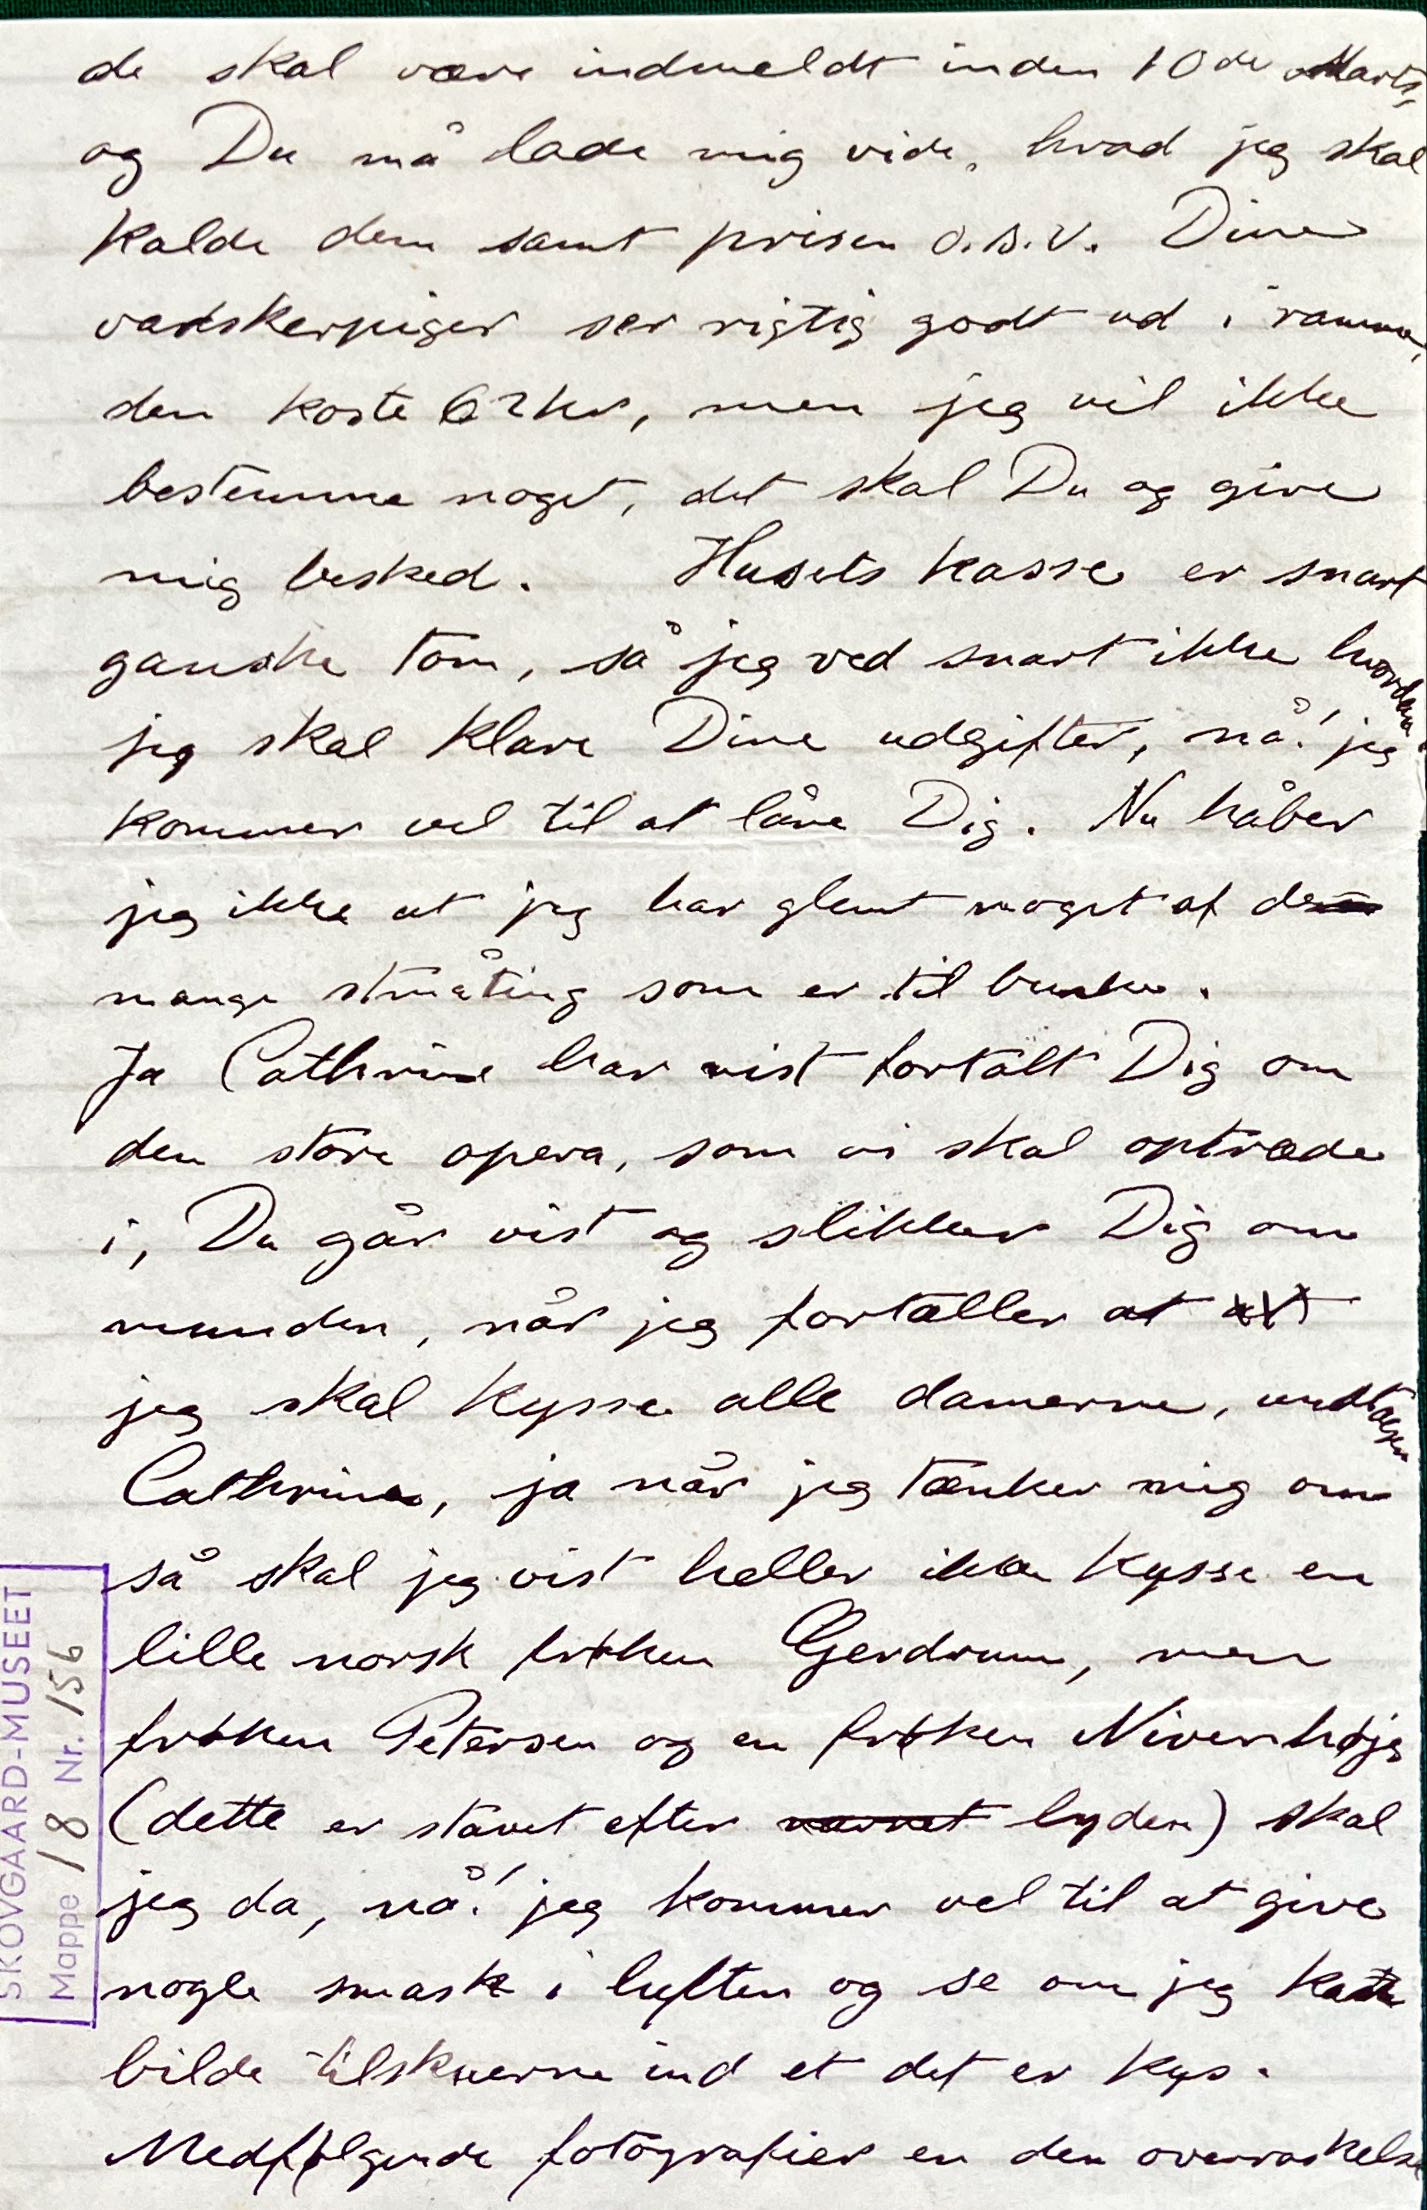 de skal være indmeldt inden 10de Marts,
og Du må lade mig vide, hvad jeg skal
kalde dem samt prisen o.s.v. Dine
vaskerpiger ser rigtig godt ud i ramme,
den koste 62 kr, men jeg vil ikke
bestemme noget, det skal Du og give
mig besked. Husets kasse er snart
ganske tom, så jeg ved snart ikke hvordan
jeg skal klare Dine udgifter, nå! jeg
kommer vel til at låne Dig. Nu håber
jeg ikke at jeg har glemt noget af de
mange småting som er til bunke.
Ja Cathrine har vist fortalt Dig om
den store opera, som vi skal optræde
i, Du går vist og slikker Dig om
munden, når jeg fortæller at at
jeg skal kysse alle damerne, undtagen
Cathrine, ja når jeg tænker mig om
så skal jeg vist heller ikke kysse en
lille norsk frøken Gjerdrum, men
frøken Petersen og en frøken Nivenhøjs
(dette er stavet efter navnet lyden) skal
jeg da, nå! jeg kommer vel til at give
nogle smask i luften og se om jeg kan
bilde tilskuerne ind et det er kys.
Medfølgende fotografier en den overraskelse
SKOVGAARD-MUSEET
Mappe 18 Nr. 156